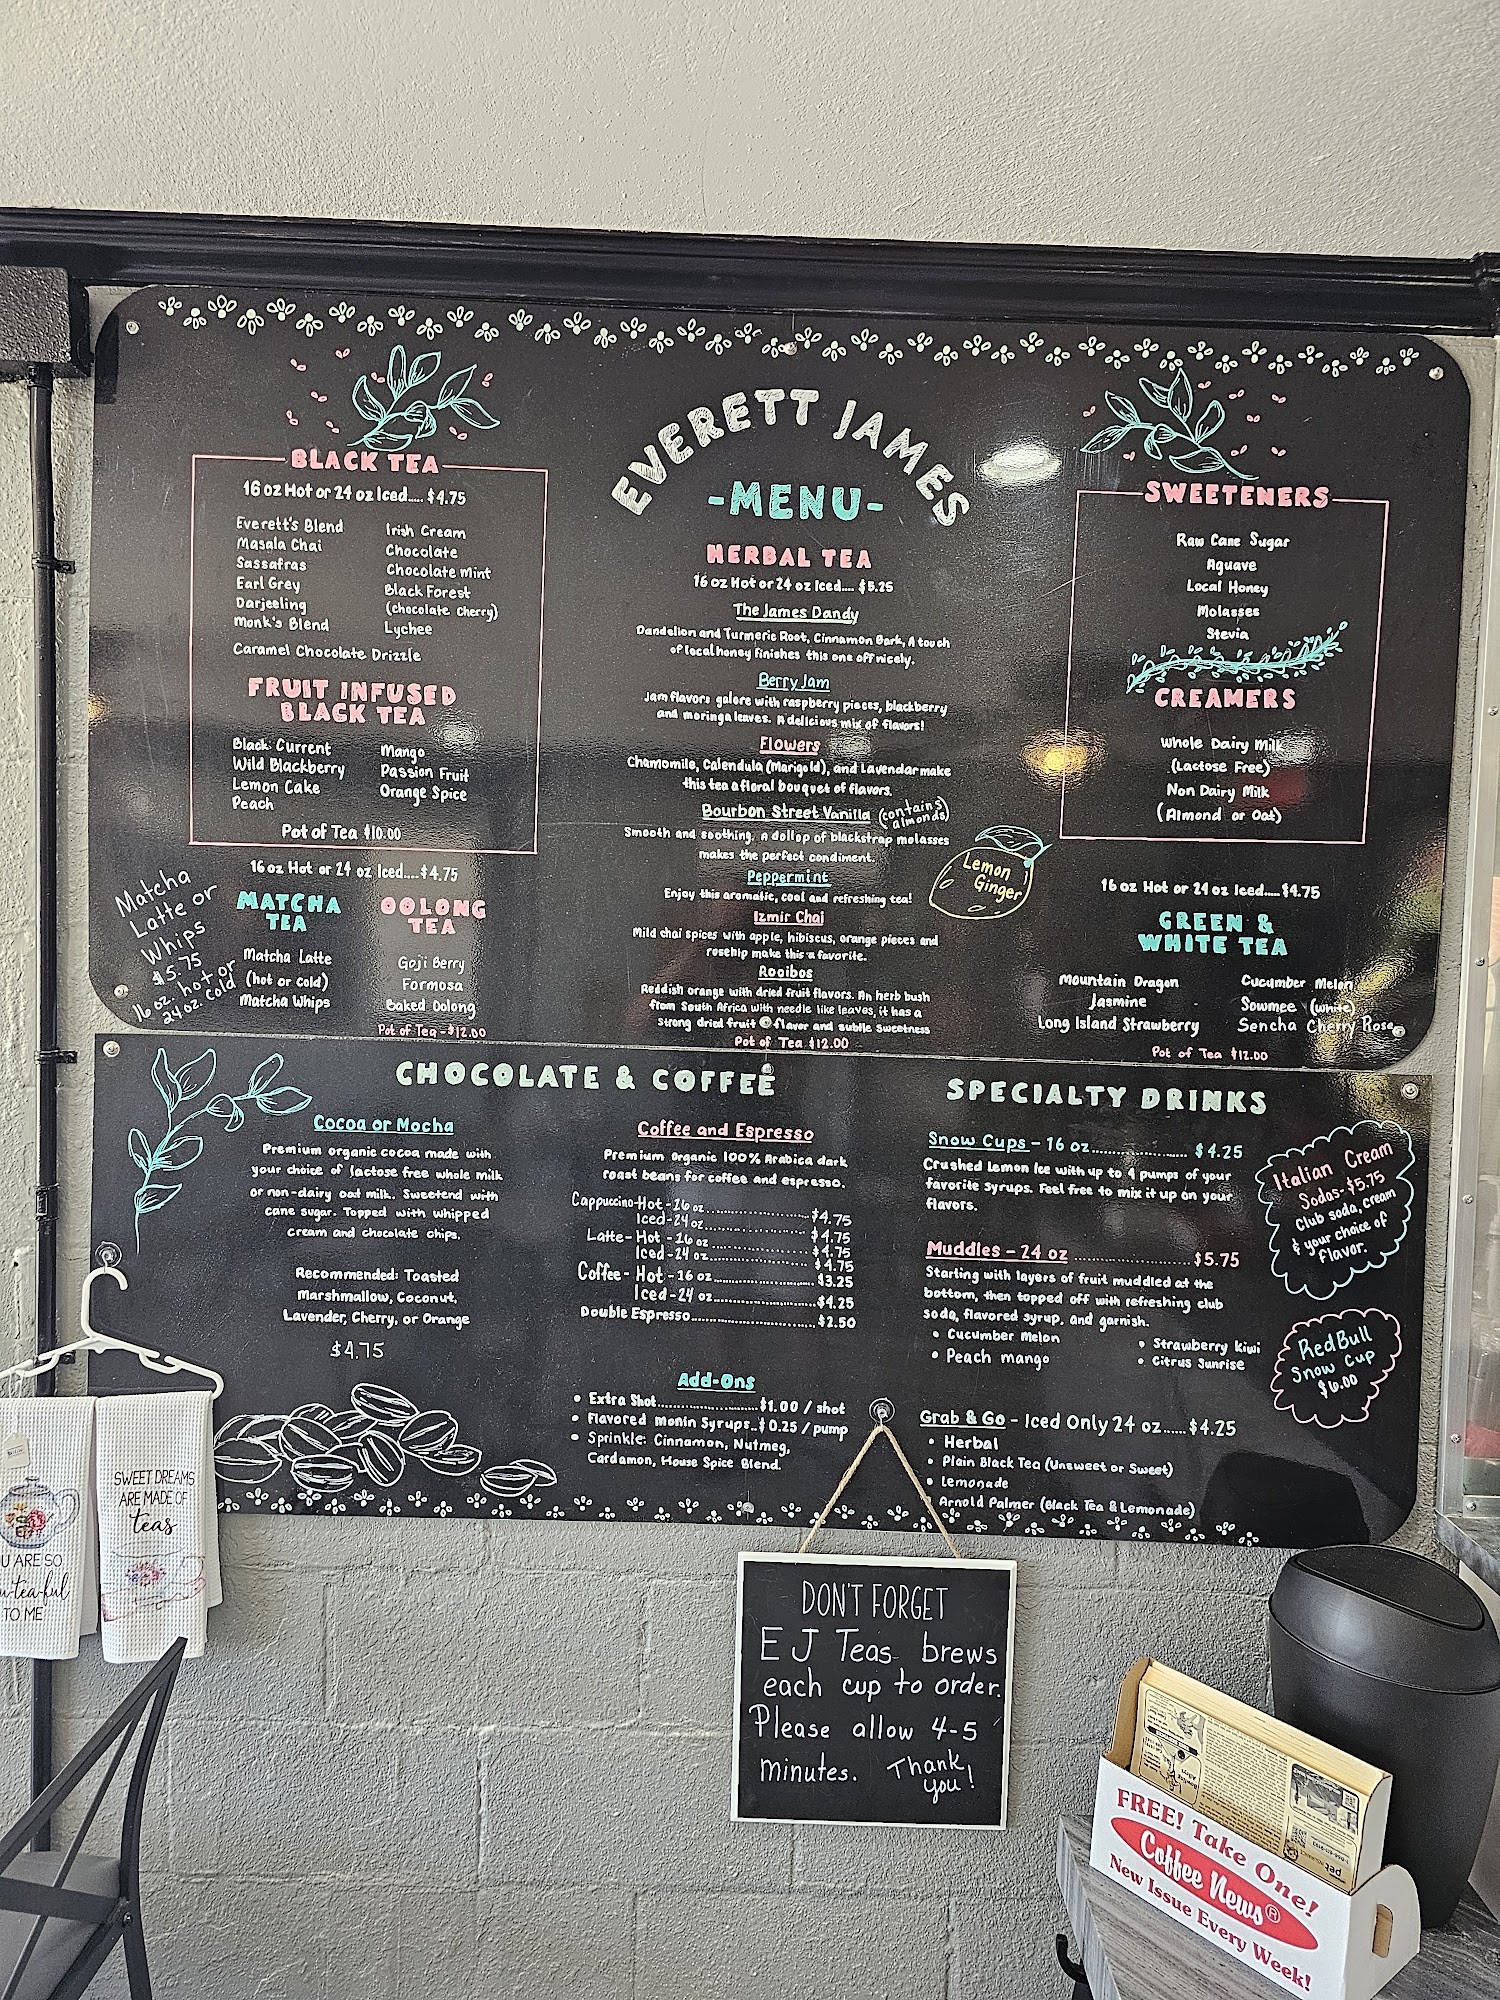 EVERETT JAMES
-MENU-
BLACK TEA
16 oz Hot or 24 oz Iced..... $4.75
Everett's Blend
Masala Chai
Sassafras
Earl Grey
Darjeeling
Monk's Blend
Irish Cream
Chocolate
Chocolate Mint
Black Forest
(chocolate Cherry)
Lychee
Caramel Chocolate Drizzle
FRUIT INFUSED
BLACK TEA
Black Current
Wild Blackberry
Lemon Cake
Peach
Mango
Passion Fruit
Orange Spice
Pot of Tea $10.00
16 oz Hot or 24 oz Iced....$4.75
Matcha
Latte or
Whips
$5.75
16 oz. hot or
24 oz. cold
MATCHA
TEA
Matcha Latte
(hot or cold)
Matcha Whips
OOLONG
TEA
Goji Berry
Formosa
Baked Oolong
Pot of Tea -$12.00
HERBAL TEA
16 oz Hot or 24 oz Iced.... $5.25
The James Dandy
Dandelion and Turmeric Root, Cinnamon Bark, A touch
of local honey finishes this one off nicely.
Berry Jam
Jam flavors galore with raspberry pieces, blackberry
and moringa leaves. A delicious mix of flavors!
Flowers
Chamomile, Calendula (Marigold), and Lavendar make
this tea a floral bouquet of flavors.
Bourbon Street Vanilla (contains
almonds)
Smooth and soothing. A dollop of blackstrap molasses
makes the perfect condiment.
Peppermint
Enjoy this aromatic, cool and refreshing tea!
Izmir Chai
Mild chai spices with apple, hibiscus, orange pieces and
rosehip make this a favorite.
Rooibos
Reddish orange with dried fruit flavors. An herb bush
from South Africa with needle like leaves, it has a
strong dried fruit flavor and subtle sweetness
Pot of Tea $12.00
Lemon
Ginger
SWEETENERS
Raw Cane Sugar
Aguave
Local Honey
Molasses
Stevia
CREAMERS
Whole Dairy Milk
(Lactose Free)
Non Dairy Milk
(Almond or Oat)
16 oz Hot or 24 oz Iced.....$4.75
GREEN &
WHITE TEA
Mountain Dragon
Jasmine
Long Island Strawberry
Cucumber Melon
Sowmee (white)
Sencha Cherry Rose
Pot of Tea $12.00
CHOCOLATE & COFFEE
Cocoa or Mocha
Premium organic cocoa made with
your choice of lactose free whole milk
or non-dairy oat milk. Sweetend with
cane sugar. Topped with whipped
cream and chocolate chips.
Recommended: Toasted
Marshmallow, Coconut,
Lavender, Cherry, or Orange
$4.75
Coffee and Espresso
Premium organic 100% Arabica dark
roast beans for coffee and espresso.
Cappuccino-Hot -16 oz.....................$4.75
Iced-24 oz.....................$4.75
Latte- Hot -16 oz.....................$4.75
Iced-24 oz.....................$4.75
Coffee- Hot -16 oz.....................$3.25
Iced-24 oz.....................$4.25
Double Espresso.....................$2.50
Add-Ons
• Extra Shot.....................$1.00 / shot
• Flavored Monin Syrups..$0.25 / pump
• Sprinkle: Cinnamon, Nutmeg,
Cardamon, House Spice Blend.
SPECIALTY DRINKS
Snow Cups - 16 oz..................... $4.25
Crushed Lemon Ice with up to 4 pumps of your
favorite syrups. Feel free to mix it up on your
flavors.
Muddles - 24 oz .....................$5.75
Starting with layers of fruit muddled at the
bottom, then topped off with refreshing club
soda, flavored syrup, and garnish.
• Cucumber Melon
• Peach mango
• Strawberry Kiwi
• Citrus Sunrise
Grab & Go - Iced Only 24 oz......$4.25
• Herbal
• Plain Black Tea (Unsweet or Sweet)
• Lemonade
• Arnold Palmer (Black Tea & Lemonade)
Italian Cream
Sodas-$5.75
Club soda, cream
& your choice of
flavor.
RedBull
Snow Cup
$6.00
SWEET DREAMS
ARE MADE OF
teas
U ARE SO
u-tea-ful
TO ME
DON'T FORGET
E J Teas brews
each cup to order.
Please allow 4-5
minutes. Thank
you!
FREE! Take One!
Coffee News®
New Issue Every Week!